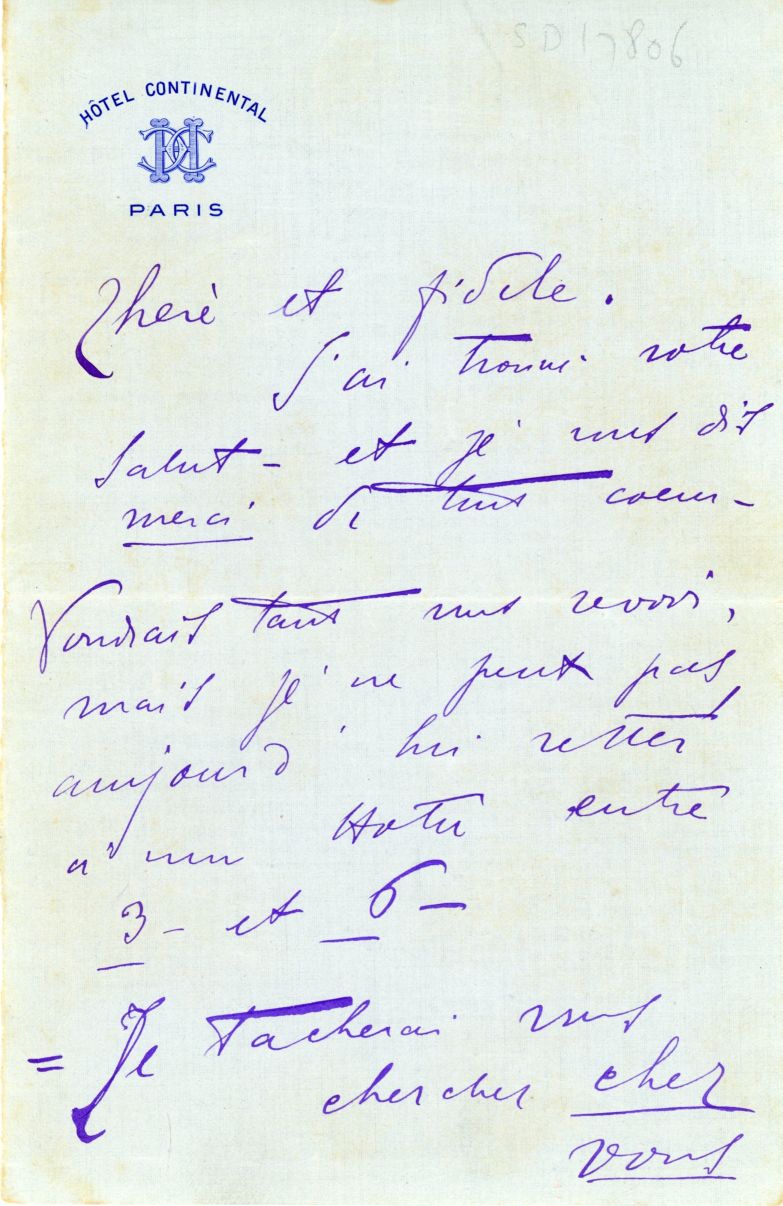 SD17806
HÔTEL CONTINENTAL
HC
PARIS
Cheré et fidele.
J'ai trouvé votre
salut - et je vous dis
merci de tout coeur -
Voudrais tant vous revoir,
mais je ne peux pas
aujourd'hui rester
a' mon Hotel entre
3 - et 6 -
= Je tacherai vous
chercher chez
vous